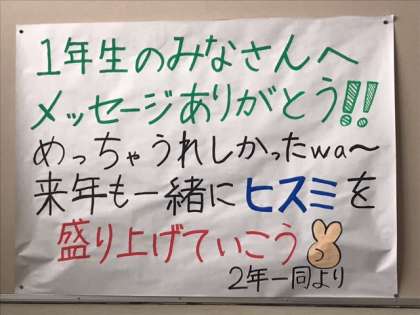 1年生のみなさんへ
メッセージありがとう!!
めっちゃうれしかったwa〜
来年も一緒にヒスミを
盛り上げていこう
2年一同より